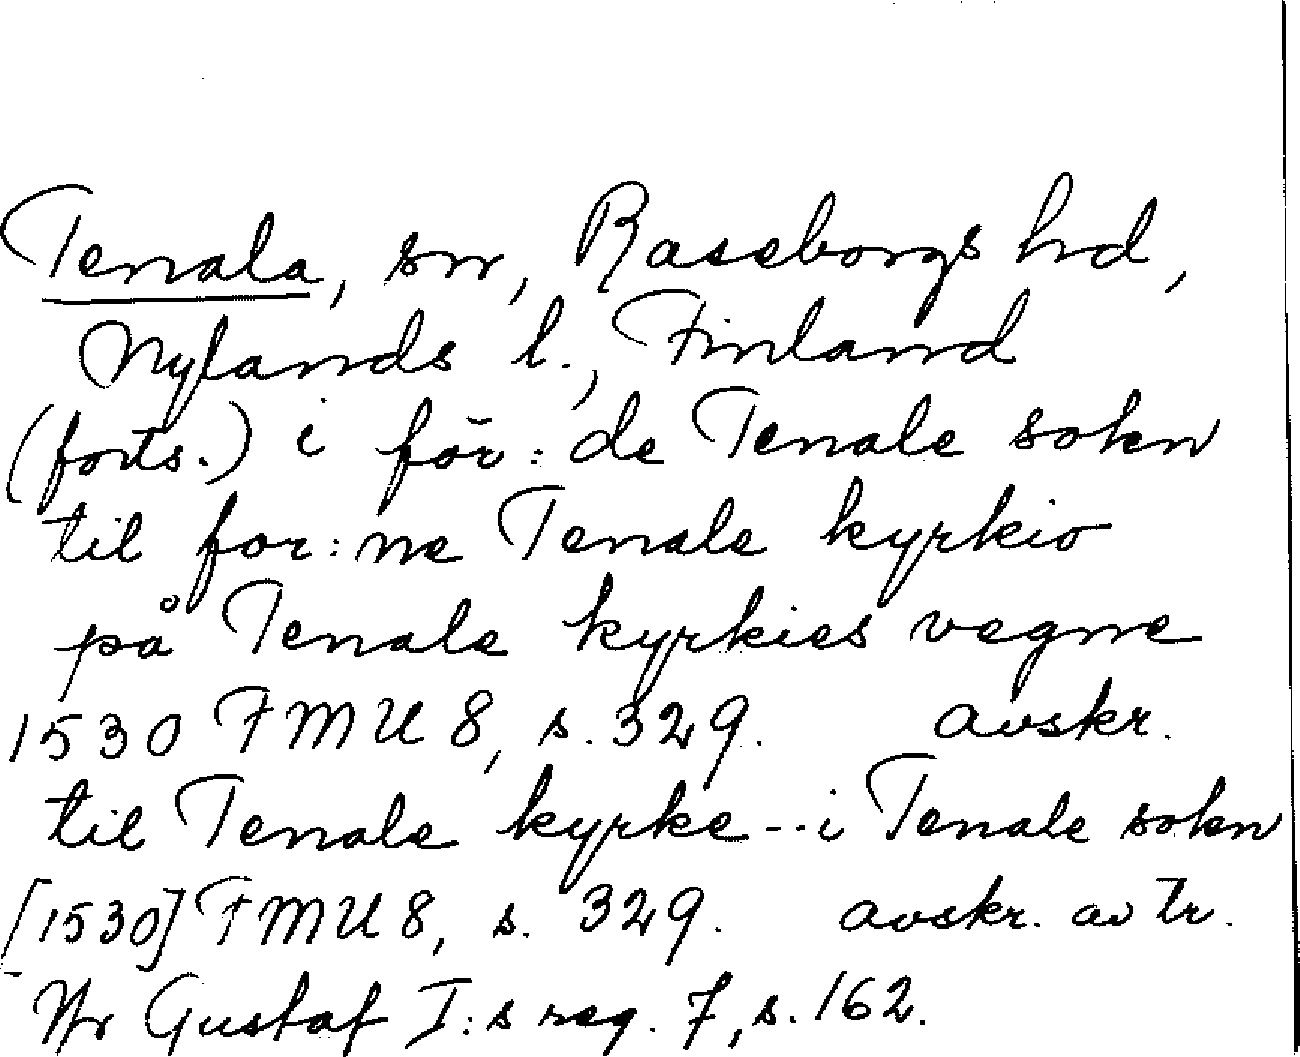 Tenala, sn, Raseborgs hd,
Nylands l., Finland
(forts.) i för:de Tenale sokn
til for:ne Tenale kyrkio
på Tenale kyrkies vegne
1530 FMU 8, s. 329. avskr.
til Tenale kyrke -- i Tenale sokn
[1530] FMU 8, s. 329. avskr. av tr.
Gustaf I:s reg. 7, s. 162.